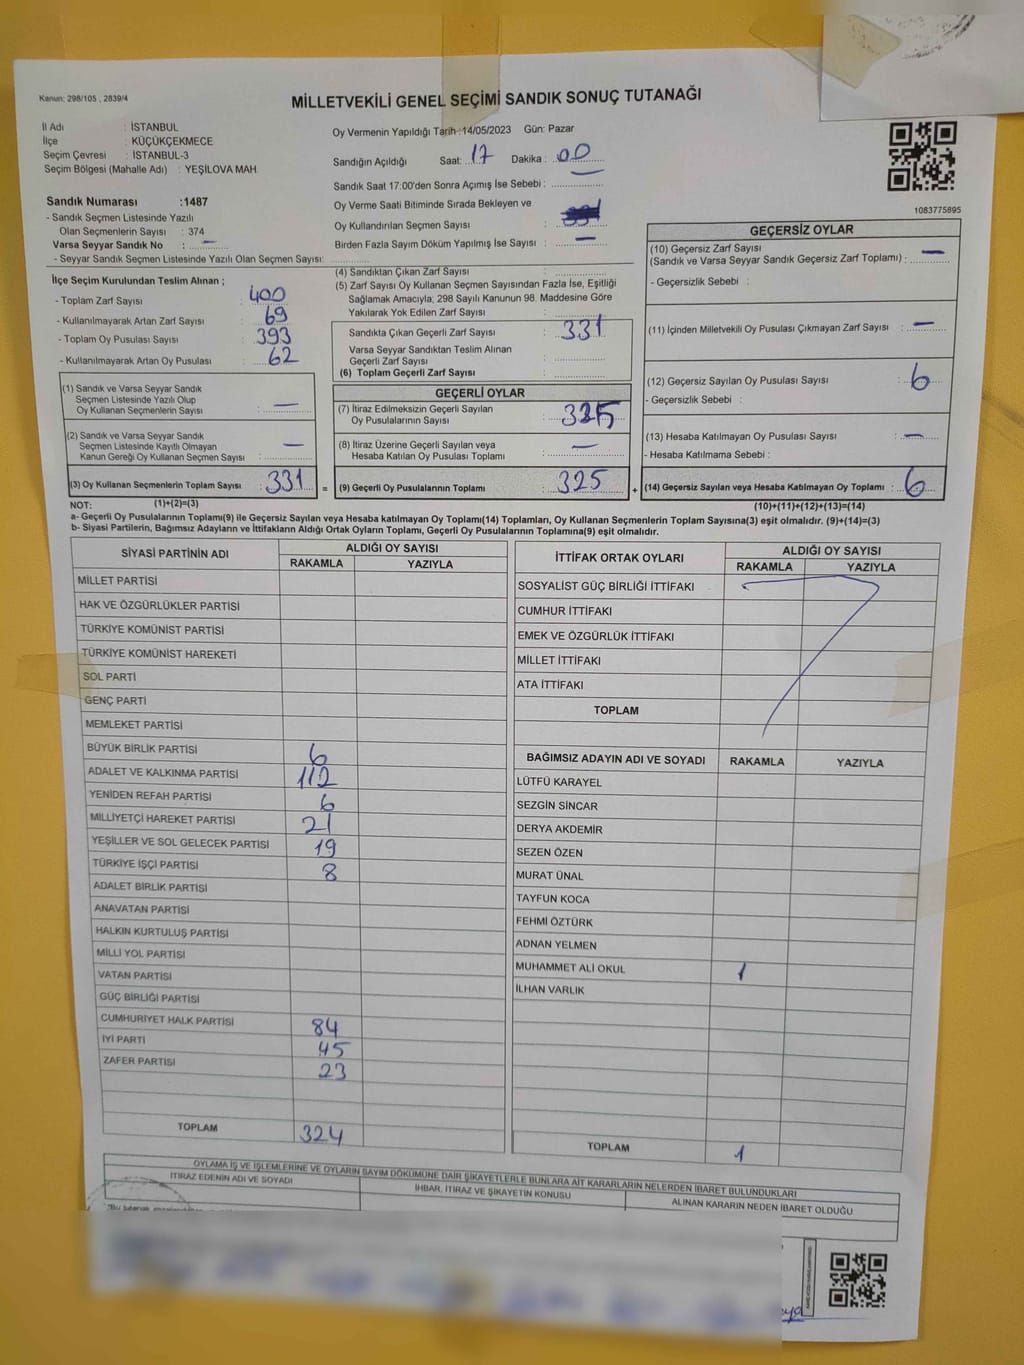 Kanun: 298/105 , 2839/4
MİLLETVEKİLİ GENEL SEÇİMİ SANDIK SONUÇ TUTANAĞI
İl Adı : İSTANBUL
İlçe : KÜÇÜKÇEKMECE
Seçim Çevresi : İSTANBUL-3
Seçim Bölgesi (Mahalle Adı) : YEŞİLOVA MAH.
Sandık Numarası :1487
- Sandık Seçmen Listesinde Yazılı
Olan Seçmenlerin Sayısı : 374
Varsa Seyyar Sandık No : —
- Seyyar Sandık Seçmen Listesinde Yazılı Olan Seçmen Sayısı:
Oy Vermenin Yapıldığı Tarih :14/05/2023 Gün: Pazar
Sandığın Açıldığı Saat: 17 Dakika : 00
Sandık Saat 17:00'den Sonra Açımış İse Sebebi :
Oy Verme Saati Bitiminde Sırada Bekleyen ve
Oy Kullandırılan Seçmen Sayısı :
Birden Fazla Sayım Döküm Yapılmış İse Sayısı : —
1083775895
İlçe Seçim Kurulundan Teslim Alınan ;
- Toplam Zarf Sayısı : 400
- Kullanılmayarak Artan Zarf Sayısı : 69
- Toplam Oy Pusulası Sayısı : 393
- Kullanılmayarak Artan Oy Pusulası : 62
(1) Sandık ve Varsa Seyyar Sandık
Seçmen Listesinde Yazılı Olup
Oy Kullanan Seçmenlerin Sayısı : —
(2) Sandık ve Varsa Seyyar Sandık
Seçmen Listesinde Kayıtlı Olmayan
Kanun Gereği Oy Kullanan Seçmen Sayısı : —
(3) Oy Kullanan Seçmenlerin Toplam Sayısı : 331 =
(4) Sandıktan Çıkan Zarf Sayısı :
(5) Zarf Sayısı Oy Kullanan Seçmen Sayısından Fazla İse, Eşitliği
Sağlamak Amacıyla; 298 Sayılı Kanunun 98. Maddesine Göre
Yakılarak Yok Edilen Zarf Sayısı :
Sandıkta Çıkan Geçerli Zarf Sayısı : 331
Varsa Seyyar Sandıktan Teslim Alınan
Geçerli Zarf Sayısı :
(6) Toplam Geçerli Zarf Sayısı :
GEÇERLİ OYLAR
(7) İtiraz Edilmeksizin Geçerli Sayılan
Oy Pusulalarının Sayısı : 325
(8) İtiraz Üzerine Geçerli Sayılan veya
Hesaba Katılan Oy Pusulası Toplamı : —
(9) Geçerli Oy Pusulalarının Toplamı : 325 +
GEÇERSİZ OYLAR
(10) Geçersiz Zarf Sayısı
(Sandık ve Varsa Seyyar Sandık Geçersiz Zarf Toplamı) : —
- Geçersizlik Sebebi :
(11) İçinden Milletvekili Oy Pusulası Çıkmayan Zarf Sayısı : —
(12) Geçersiz Sayılan Oy Pusulası Sayısı : 6
- Geçersizlik Sebebi :
(13) Hesaba Katılmayan Oy Pusulası Sayısı : —
- Hesaba Katılmama Sebebi :
(14) Geçersiz Sayılan veya Hesaba Katılmayan Oy Toplamı : 6
NOT: (1)+(2)=(3)
(10)+(11)+(12)+(13)=(14)
a- Geçerli Oy Pusulalarının Toplamı(9) ile Geçersiz Sayılan veya Hesaba katılmayan Oy Toplamı(14) Toplamları, Oy Kullanan Seçmenlerin Toplam Sayısına(3) eşit olmalıdır. (9)+(14)=(3)
b- Siyasi Partilerin, Bağımsız Adayların ve İttifakların Aldığı Ortak Oyların Toplamı, Geçerli Oy Pusulalarının Toplamına(9) eşit olmalıdır.
SİYASİ PARTİNİN ADI
ALDIĞI OY SAYISI
RAKAMLA YAZIYLA
MİLLET PARTİSİ
HAK VE ÖZGÜRLÜKLER PARTİSİ
TÜRKİYE KOMÜNİST PARTİSİ
TÜRKİYE KOMÜNİST HAREKETİ
SOL PARTİ
GENÇ PARTİ
MEMLEKET PARTİSİ
BÜYÜK BİRLİK PARTİSİ 6
ADALET VE KALKINMA PARTİSİ 112
YENİDEN REFAH PARTİSİ 6
MİLLİYETÇİ HAREKET PARTİSİ 21
YEŞİLLER VE SOL GELECEK PARTİSİ 19
TÜRKİYE İŞÇİ PARTİSİ 8
ADALET BİRLİK PARTİSİ
ANAVATAN PARTİSİ
HALKIN KURTULUŞ PARTİSİ
MİLLİ YOL PARTİSİ
VATAN PARTİSİ
GÜÇ BİRLİĞİ PARTİSİ
CUMHURİYET HALK PARTİSİ 84
İYİ PARTİ 45
ZAFER PARTİSİ 23
TOPLAM 324
İTTİFAK ORTAK OYLARI
ALDIĞI OY SAYISI
RAKAMLA YAZIYLA
SOSYALİST GÜÇ BİRLİĞİ İTTİFAKI
CUMHUR İTTİFAKI
EMEK VE ÖZGÜRLÜK İTTİFAKI
MİLLET İTTİFAKI
ATA İTTİFAKI
TOPLAM
BAĞIMSIZ ADAYIN ADI VE SOYADI RAKAMLA YAZIYLA
LÜTFÜ KARAYEL
SEZGİN SİNCAR
DERYA AKDEMİR
SEZEN ÖZEN
MURAT ÜNAL
TAYFUN KOCA
FEHMİ ÖZTÜRK
ADNAN YELMEN
MUHAMMET ALİ OKUL 1
İLHAN VARLIK
TOPLAM 1
OYLAMA İŞ VE İŞLEMLERİNE VE OYLARIN SAYIM DÖKÜMÜNE DAİR ŞİKAYETLERLE BUNLARA AİT KARARLARIN NELERDEN İBARET BULUNDUKLARI
İTİRAZ EDENİN ADI VE SOYADI
İHBAR, İTİRAZ VE ŞİKAYETİN KONUSU
ALINAN KARARIN NEDEN İBARET OLDUĞU